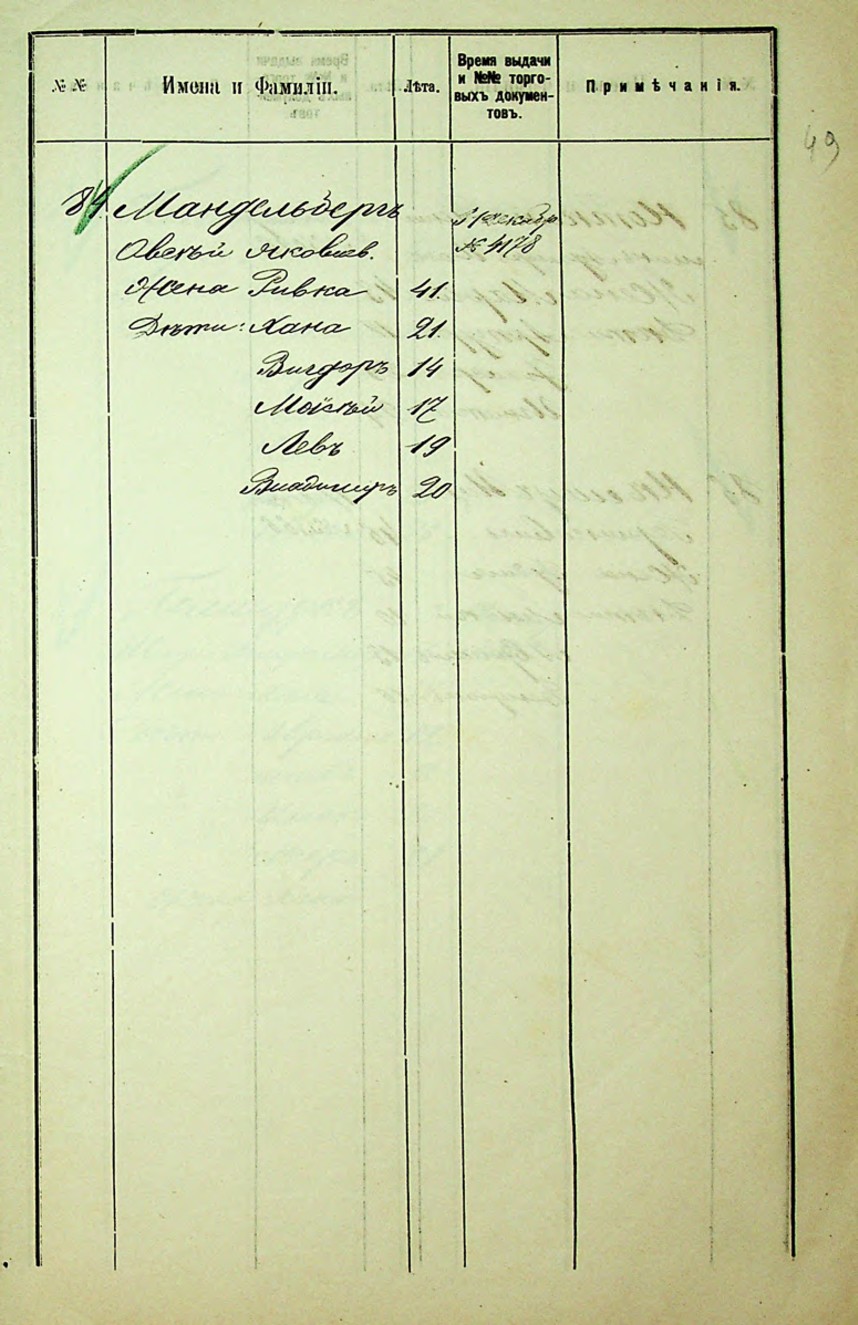 № № Имена и Фамиліи. Лѣта. Время выдачи и №№ торговыхъ документовъ. Примѣчанія.
49
84. Мандельбергъ
Овсѣй Яковлев. № 4178
Жена Ривка 41.
Дѣти: Хана 21.
Вигдоръ 14
Мойсѣй 17
Левъ 19
Владимиръ 20